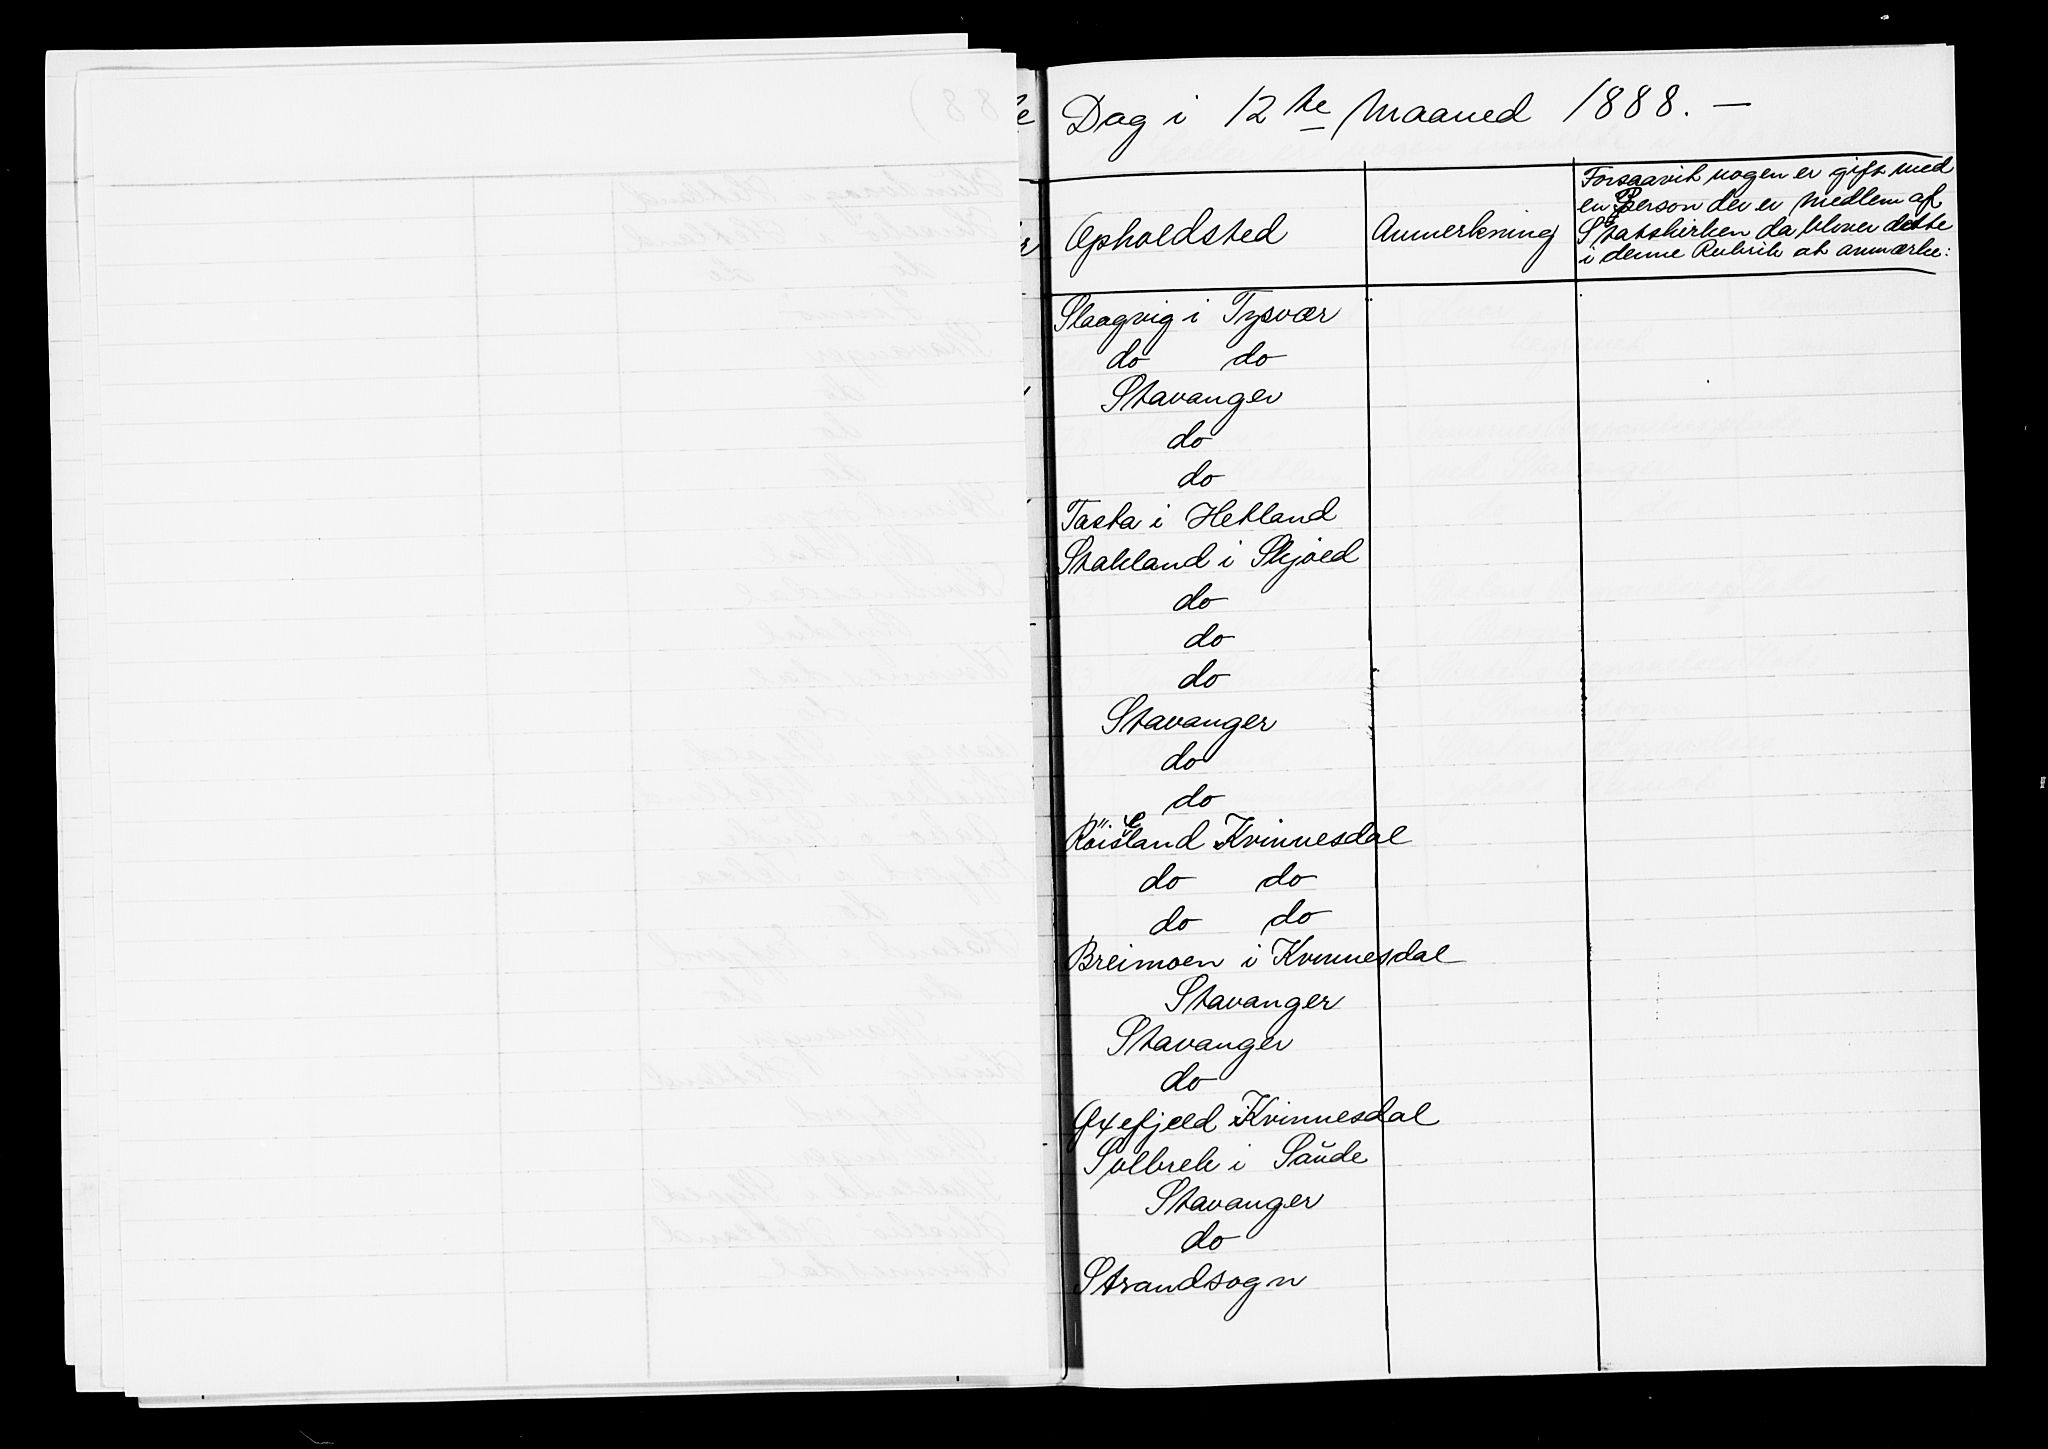 Dag i 12te Maaned 1888. —
Opholdsted
Anmerkning
Forsaavit nogen er gift med
en Person der er Medlem af
Statskirken da bliver dette
i denne Rubrik at anmærke:
Slaagvig i Tysvær
do do
Stavanger
do
do
Tasta i Hetland
Stakland i Skjold
do
do
do
Stavanger
do
do
Kvinnesdal
do do
do do
Breimoen i Kvinnesdal
Stavanger
Stavanger
do
Oxefjeld i Kvinnesdal
i Saude
Stavanger
do
Strandsogn